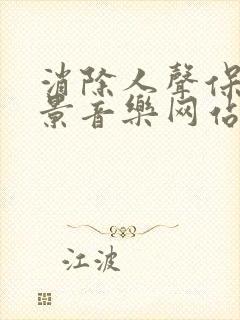 消除人聲保
景音樂网佔
江波